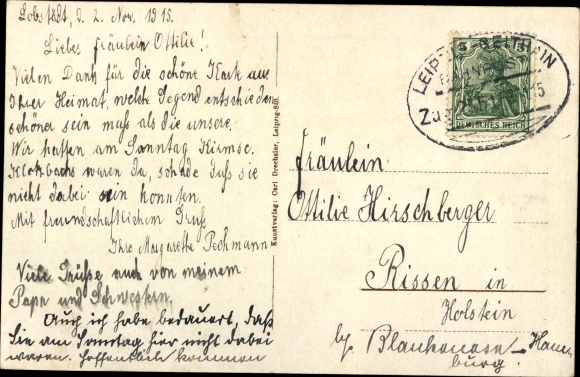 Lobstädt, d. 2. Nov. 1915.
Liebes Fräulein Ottilie!
Vielen Dank für die schöne Karte aus
Ihrer Heimat, welche Gegend entschieden
schöner sein muß als die unsere.
Wir hatten am Sonntag Kirmse.
Klotzbachs waren da, schade daß sie
nicht dabei sein konnten.
Mit freundschaftlichem Gruß
Ihre Margarette Pechmann
Viele Grüße auch von meinem
Papa und Schwestern.
Auch ich habe bedauert, daß
Sie am Sonntag hier nicht dabei
waren. Hoffentlich kommen
Kunstverlag: Carl Drechsler, Leipzig-Stö.
LEIPZIG-GEITHAIN
BAHNPOST
Zug
15
DEUTSCHES REICH
Fräulein
Ottilie Hirschberger
Rissen in
Holstein
b/ Blankenese – Ham
burg.